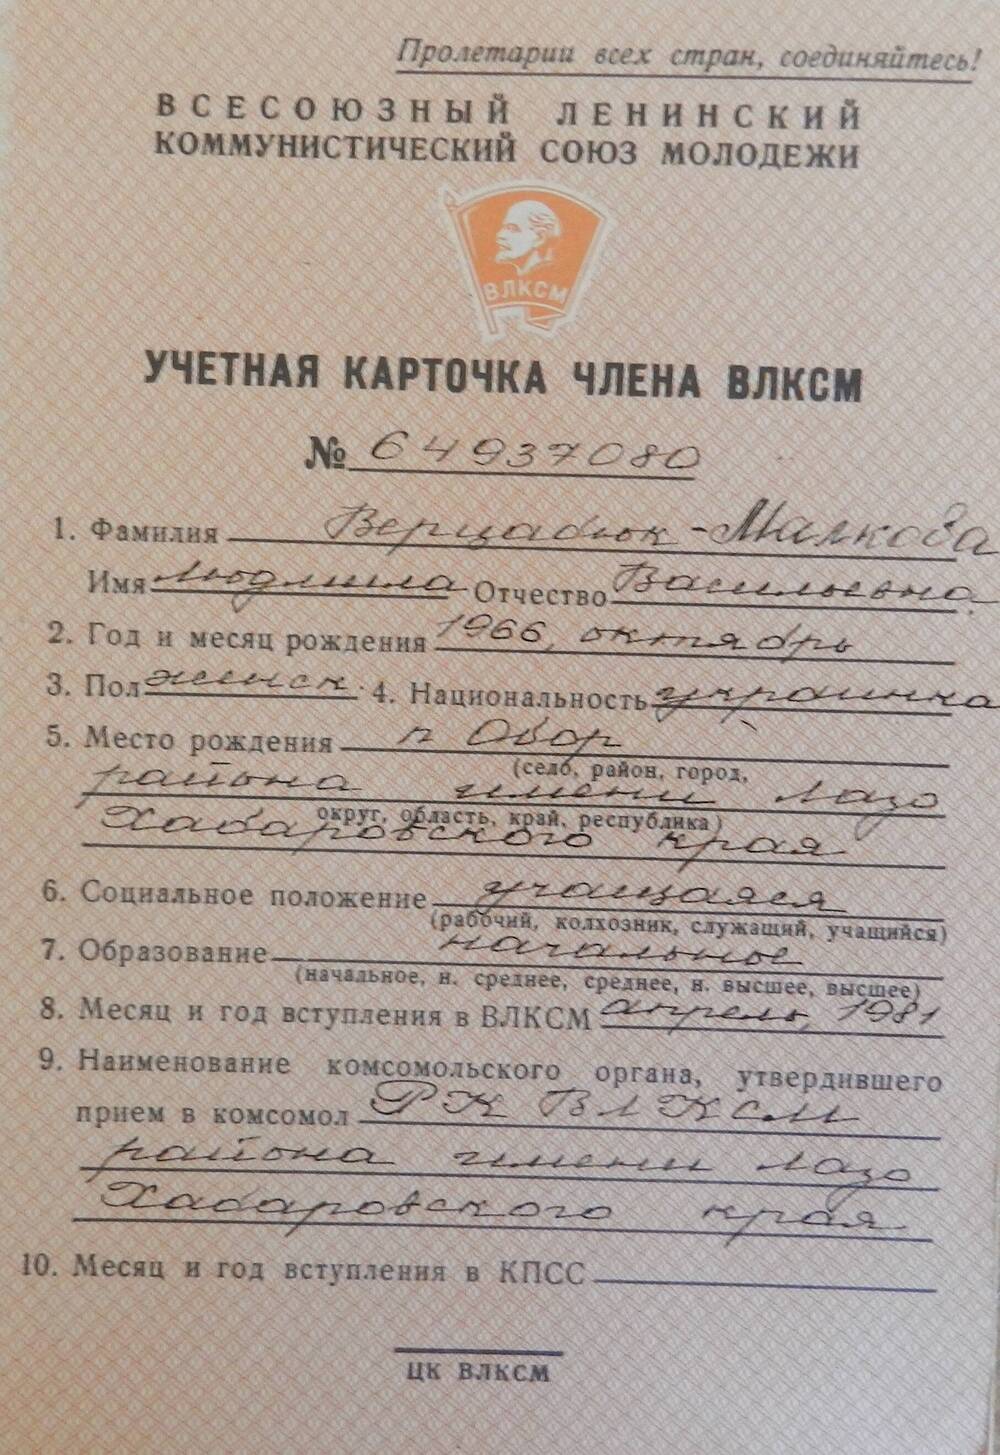 Пролетарии всех стран, соединяйтесь!
ВСЕСОЮЗНЫЙ ЛЕНИНСКИЙ
КОММУНИСТИЧЕСКИЙ СОЮЗ МОЛОДЕЖИ
ВЛКСМ
УЧЕТНАЯ КАРТОЧКА ЧЛЕНА ВЛКСМ
№ 64937080
1. Фамилия Верцабюк-Малкова
Имя Людмила Отчество Васильевна
2. Год и месяц рождения 1966, октябрь
3. Пол женск. 4. Национальность украинка
5. Место рождения п Обор
(село, район, город,
района имени Лазо
округ, область, край, республика)
Хабаровского края
6. Социальное положение учащаяся
(рабочий, колхозник, служащий, учащийся)
7. Образование начальное
(начальное, н. среднее, среднее, н. высшее, высшее)
8. Месяц и год вступления в ВЛКСМ апрель, 1981
9. Наименование комсомольского органа, утвердившего
прием в комсомол РК ВЛКСМ
района имени Лазо
Хабаровского края
10. Месяц и год вступления в КПСС
ЦК ВЛКСМ